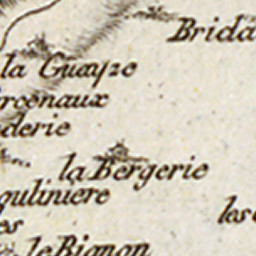 Brida
la Guayze
rcenaux
derie
la Bergerie
guliniere
les
es
le Bignon